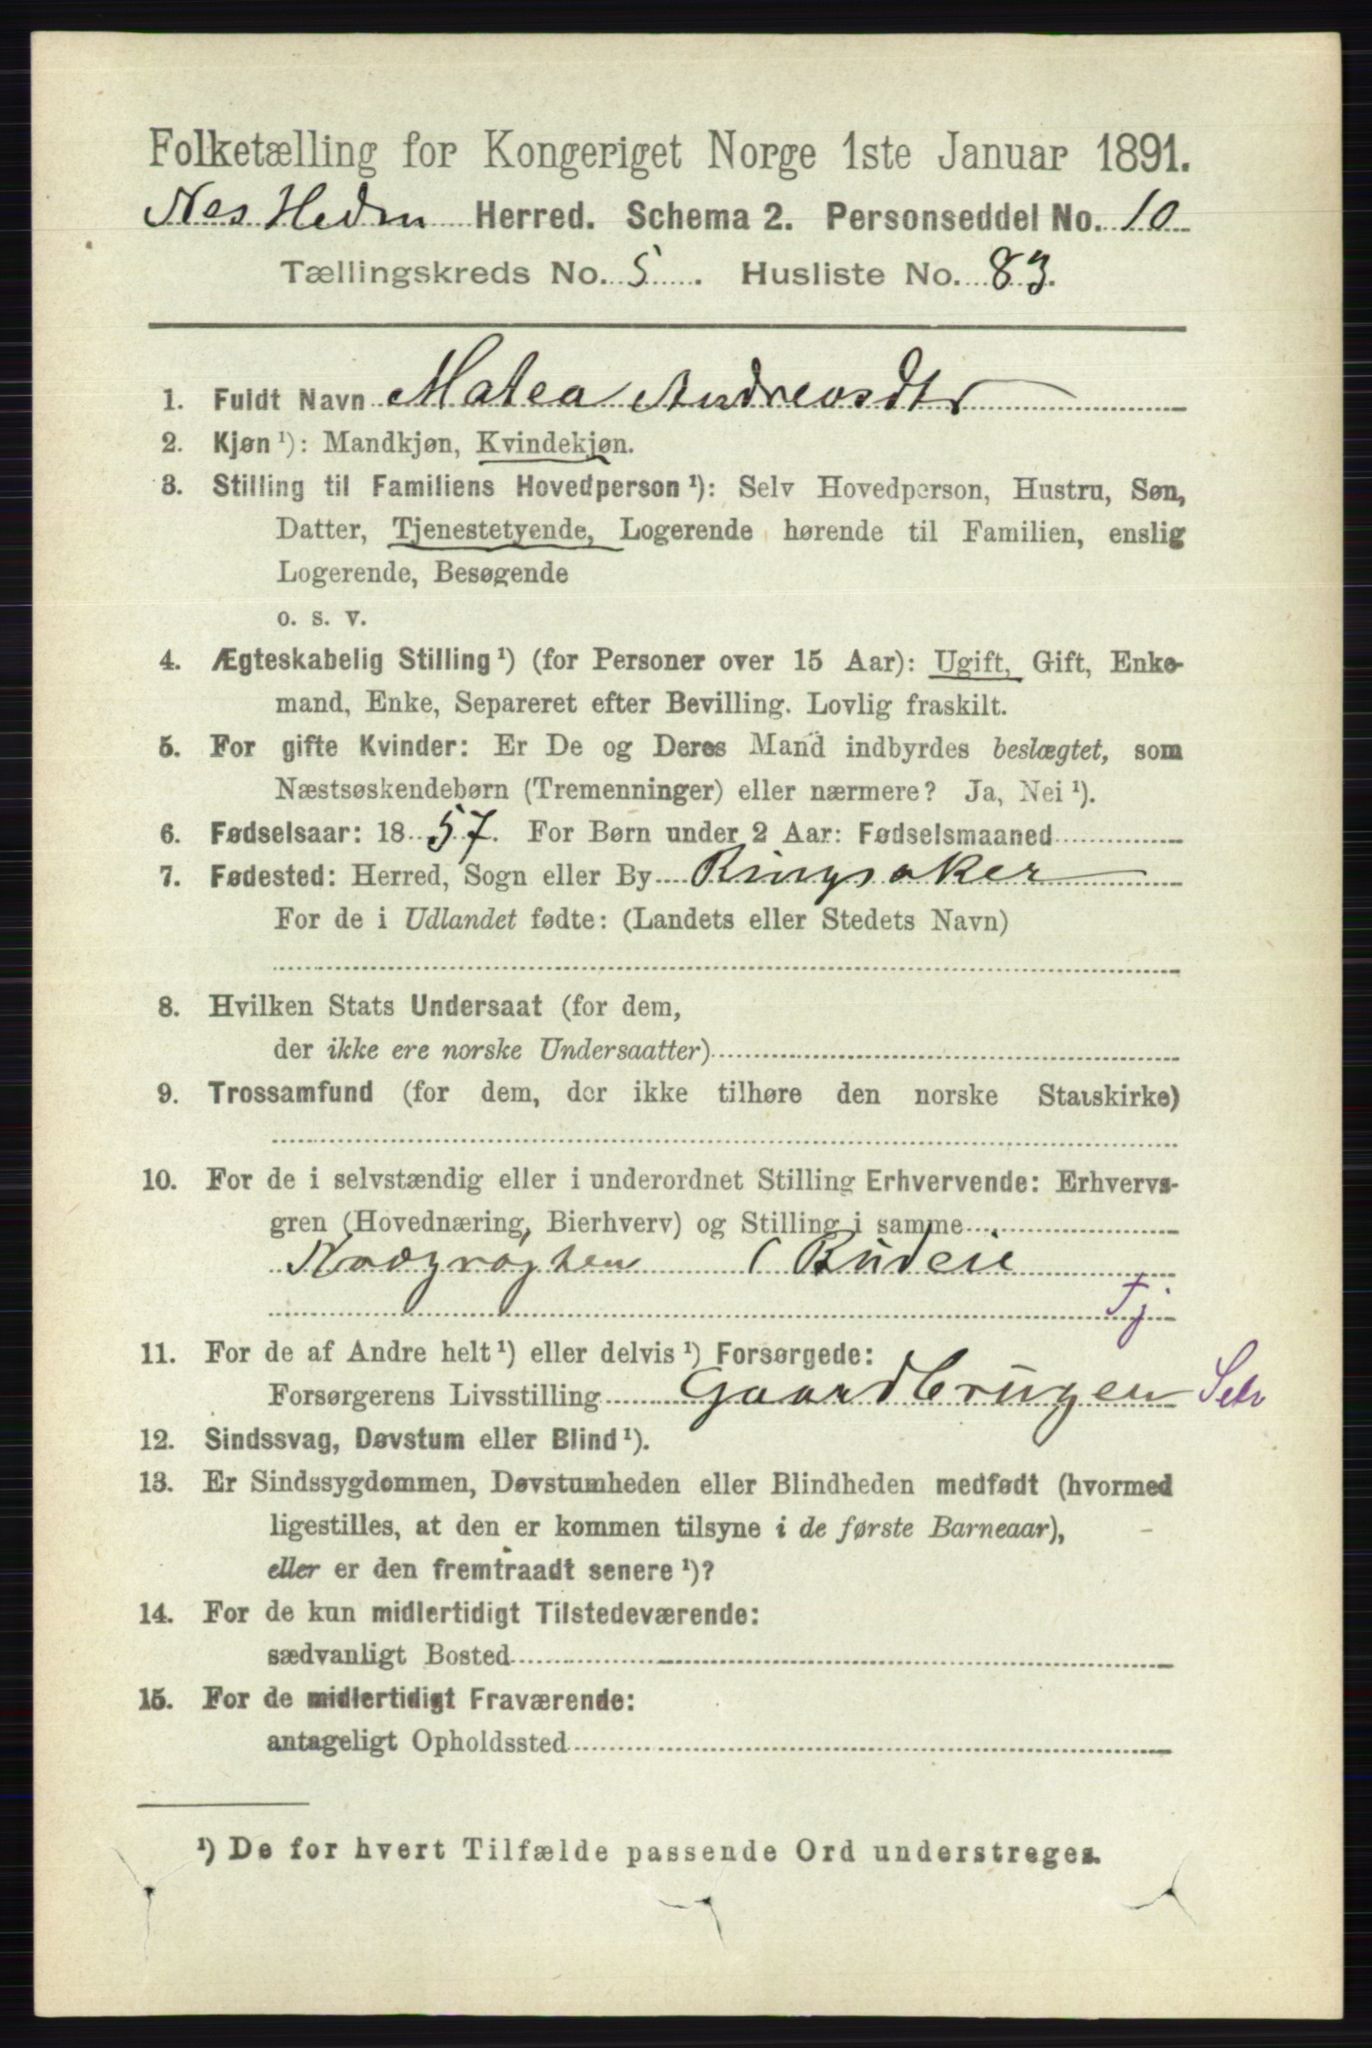 Folketælling for Kongeriget Norge 1ste Januar 1891.
Nes Hedm Herred. Schema 2. Personseddel No. 10
Tællingskreds No. 5. Husliste No. 83.
1. Fuldt Navn Matea Andreasdtr
2. Kjøn ¹): Mandkjøn, Kvindekjøn.
3. Stilling til Familiens Hovedperson ¹): Selv Hovedperson, Hustru, Søn,
Datter, Tjenestetyende, Logerende hørende til Familien, enslig
Logerende, Besøgende
o. s. v.
4. Ægteskabelig Stilling ¹) (for Personer over 15 Aar): Ugift, Gift, Enke-
mand, Enke, Separeret efter Bevilling. Lovlig fraskilt.
5. For gifte Kvinder: Er De og Deres Mand indbyrdes beslægtet, som
Næstsøskendebørn (Tremenninger) eller nærmere? Ja, Nei ¹).
6. Fødselsaar: 1857. For Børn under 2 Aar: Fødselsmaaned
7. Fødested: Herred, Sogn eller By Ringsaker
For de i Udlandet fødte: (Landets eller Stedets Navn)
8. Hvilken Stats Undersaat (for dem,
der ikke ere norske Undersaatter)
9. Trossamfund (for dem, der ikke tilhøre den norske Statskirke)
10. For de i selvstændig eller i underordnet Stilling Erhvervende: Erhvervs-
gren (Hovednæring, Bierhverv) og Stilling i samme
Budeie
Tj
11. For de af Andre helt ¹) eller delvis ¹) Forsørgede:
Forsørgerens Livsstilling Gaardbrugen
12. Sindssvag, Døvstum eller Blind ¹).
13. Er Sindssygdommen, Døvstumheden eller Blindheden medfødt (hvormed
ligestilles, at den er kommen tilsyne i de første Barneaar),
eller er den fremtraadt senere ¹)?
14. For de kun midlertidigt Tilstedeværende:
sædvanligt Bosted
15. For de midlertidigt Fraværende:
antageligt Opholdssted
¹) De for hvert Tilfælde passende Ord understreges.